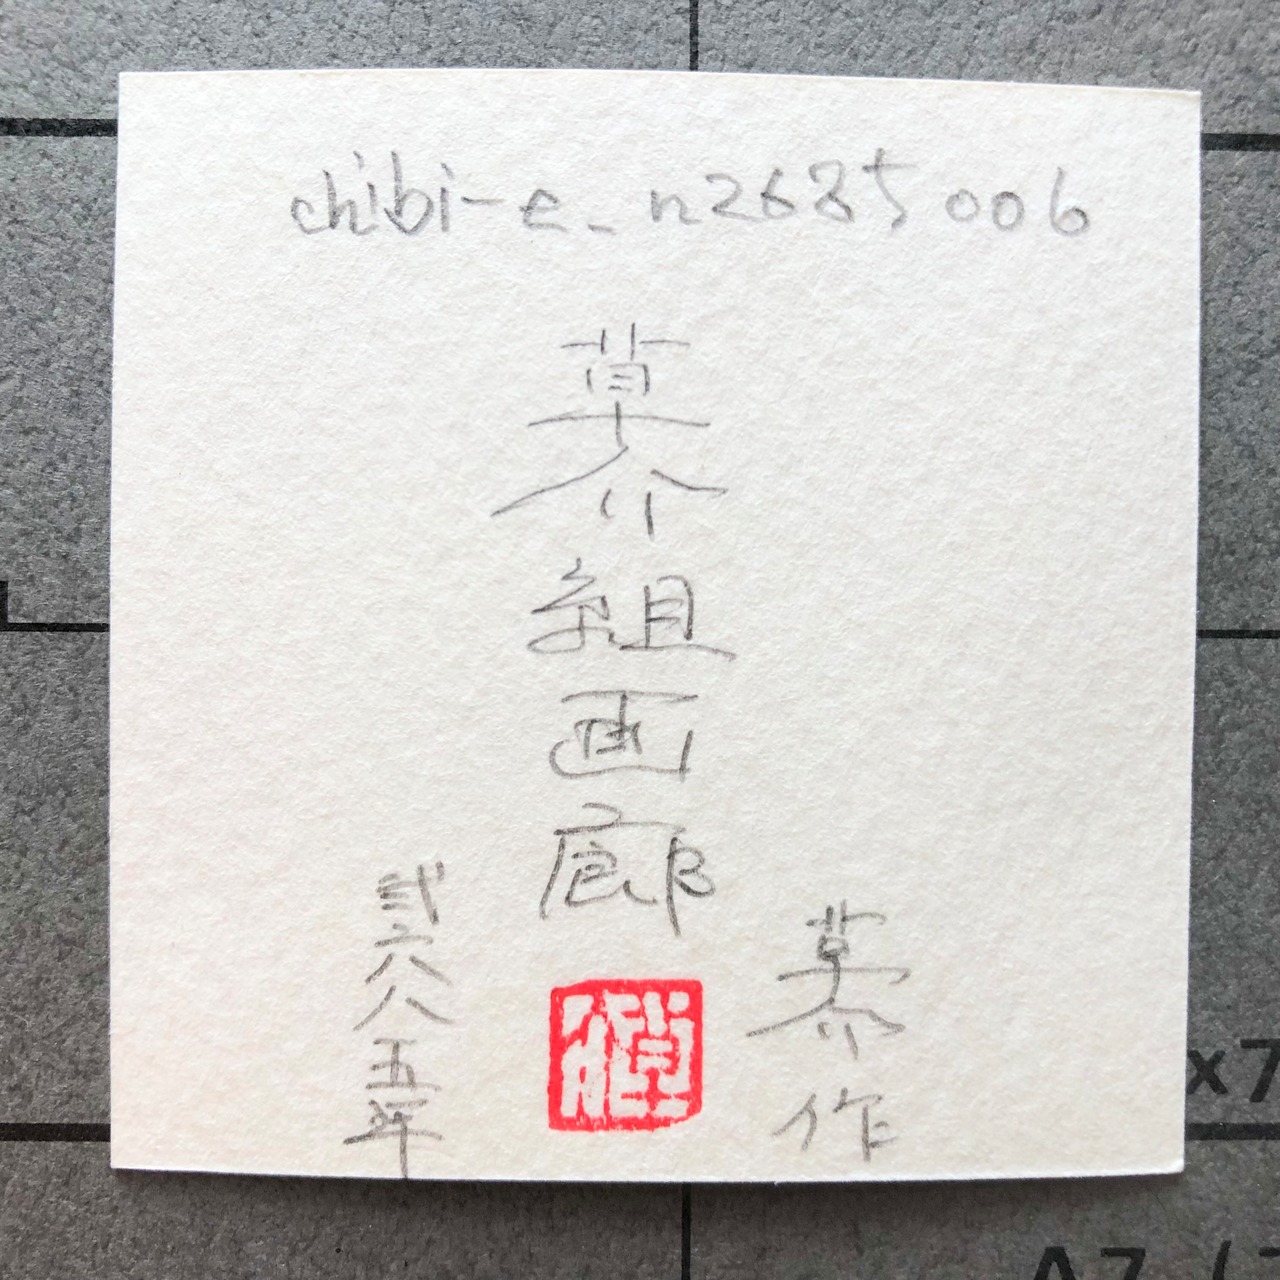 chibi-e_n2685006
草介組画廊
草介作
弐六八五年
x7
A7